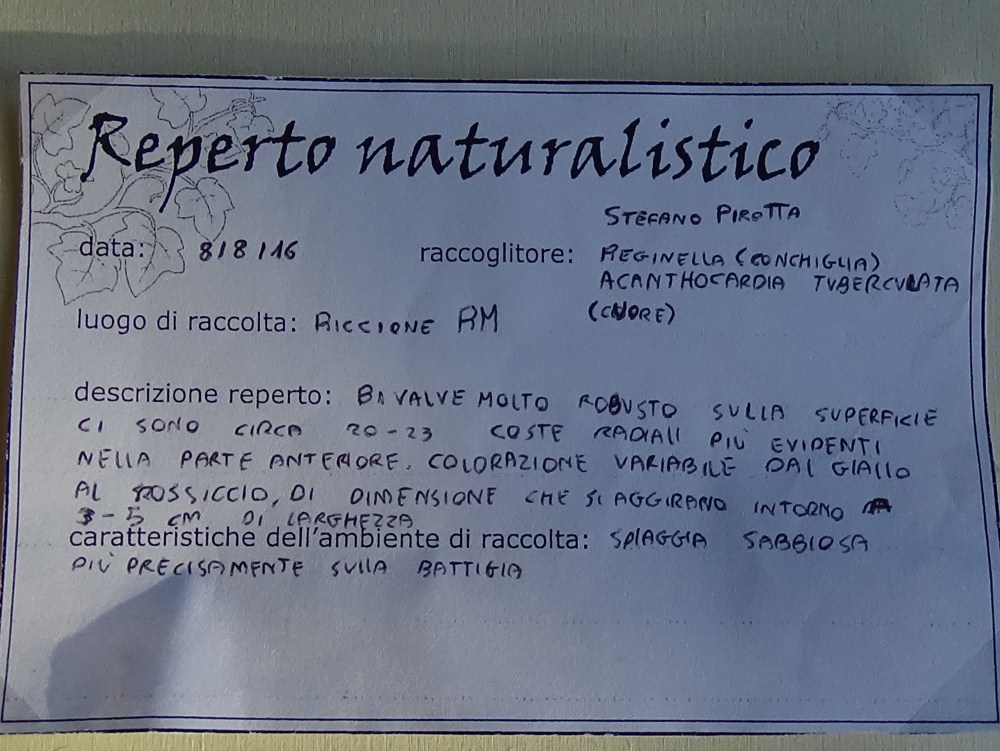 Reperto naturalistico
STEFANO PIROTTA
data: 8/8/16 raccoglitore: REGINELLA (CONCHIGLIA)
ACANTHOCARDIA TUBERCULATA
luogo di raccolta: RICCIONE RM (CUORE)
descrizione reperto: BIVALVE MOLTO ROBUSTO SULLA SUPERFICIE
CI SONO CIRCA 20-23 COSTE RADIALI PIÙ EVIDENTI
NELLA PARTE ANTERIORE. COLORAZIONE VARIABILE DAL GIALLO
AL ROSSICCIO, DI DIMENSIONE CHE SI AGGIRANO INTORNO A
3-5 CM DI LARGHEZZA
caratteristiche dell'ambiente di raccolta: SPIAGGIA SABBIOSA
PIÙ PRECISAMENTE SULLA BATTIGIA